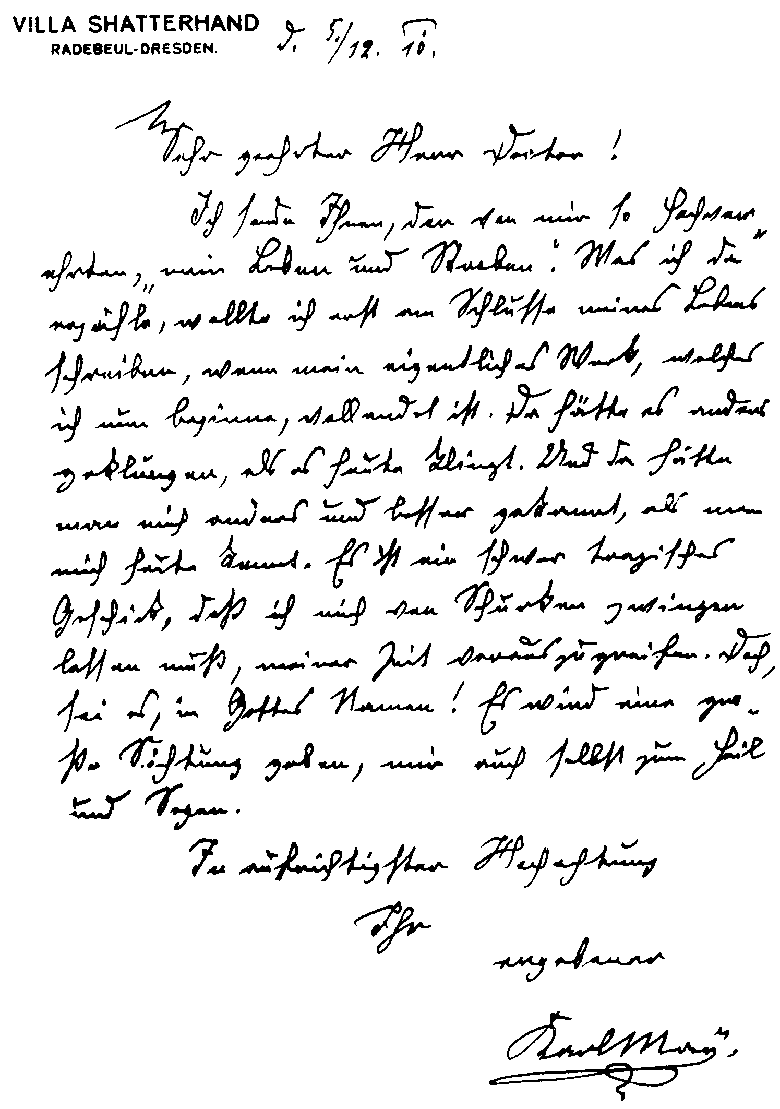 VILLA SHATTERHAND
RADEBEUL-DRESDEN.
d. 5./12. 10.
Sehr geehrter Herr Doctor!
Ich sende Ihnen, den von mir so Hochver-
ehrten, „mein Leben und Streben". Was ich da
erzähle, wollte ich erst am Schlusse meines Lebens
schreiben, wenn mein eigentliches Werk, welches
ich nun beginne, vollendet ist. Da hätte es anders
geklungen, als es heute klingt. Und da hätte
man mich anders und besser gekannt, als man
mich heute kennt. Es ist ein schwer tragisches
Geschick, daß ich mich von Schurken zwingen
lassen muß, meiner Zeit vorauszugreifen. Doch,
sei es, in Gottes Namen! Es wird eine gro-
ße Sichtung geben, mir auch selbst zum Heil
und Segen.
In aufrichtigster Hochachtung
Ihr
ergebener
Karl May.